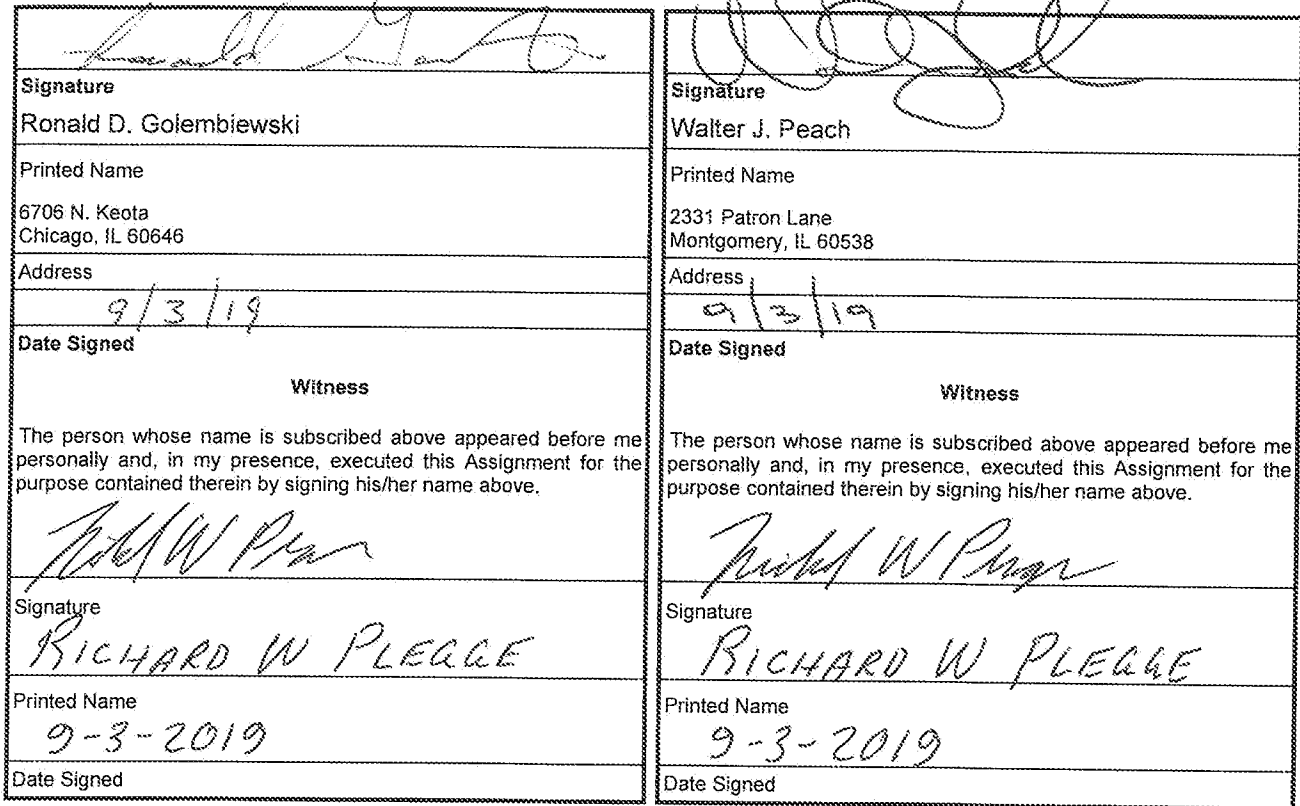 Signature
Ronald D. Golembiewski
Printed Name
6706 N. Keota
Chicago, IL 60646
Address
9/3/19
Date Signed
Witness
The person whose name is subscribed above appeared before me
personally and, in my presence, executed this Assignment for the
purpose contained therein by signing his/her name above.
Signature
RICHARD W PLEGGE
Printed Name
9-3-2019
Date Signed
Signature
Walter J. Peach
Printed Name
2331 Patron Lane
Montgomery, IL 60538
Address
9/3/19
Date Signed
Witness
The person whose name is subscribed above appeared before me
personally and, in my presence, executed this Assignment for the
purpose contained therein by signing his/her name above.
Signature
RICHARD W PLEGGE
Printed Name
9-3-2019
Date Signed